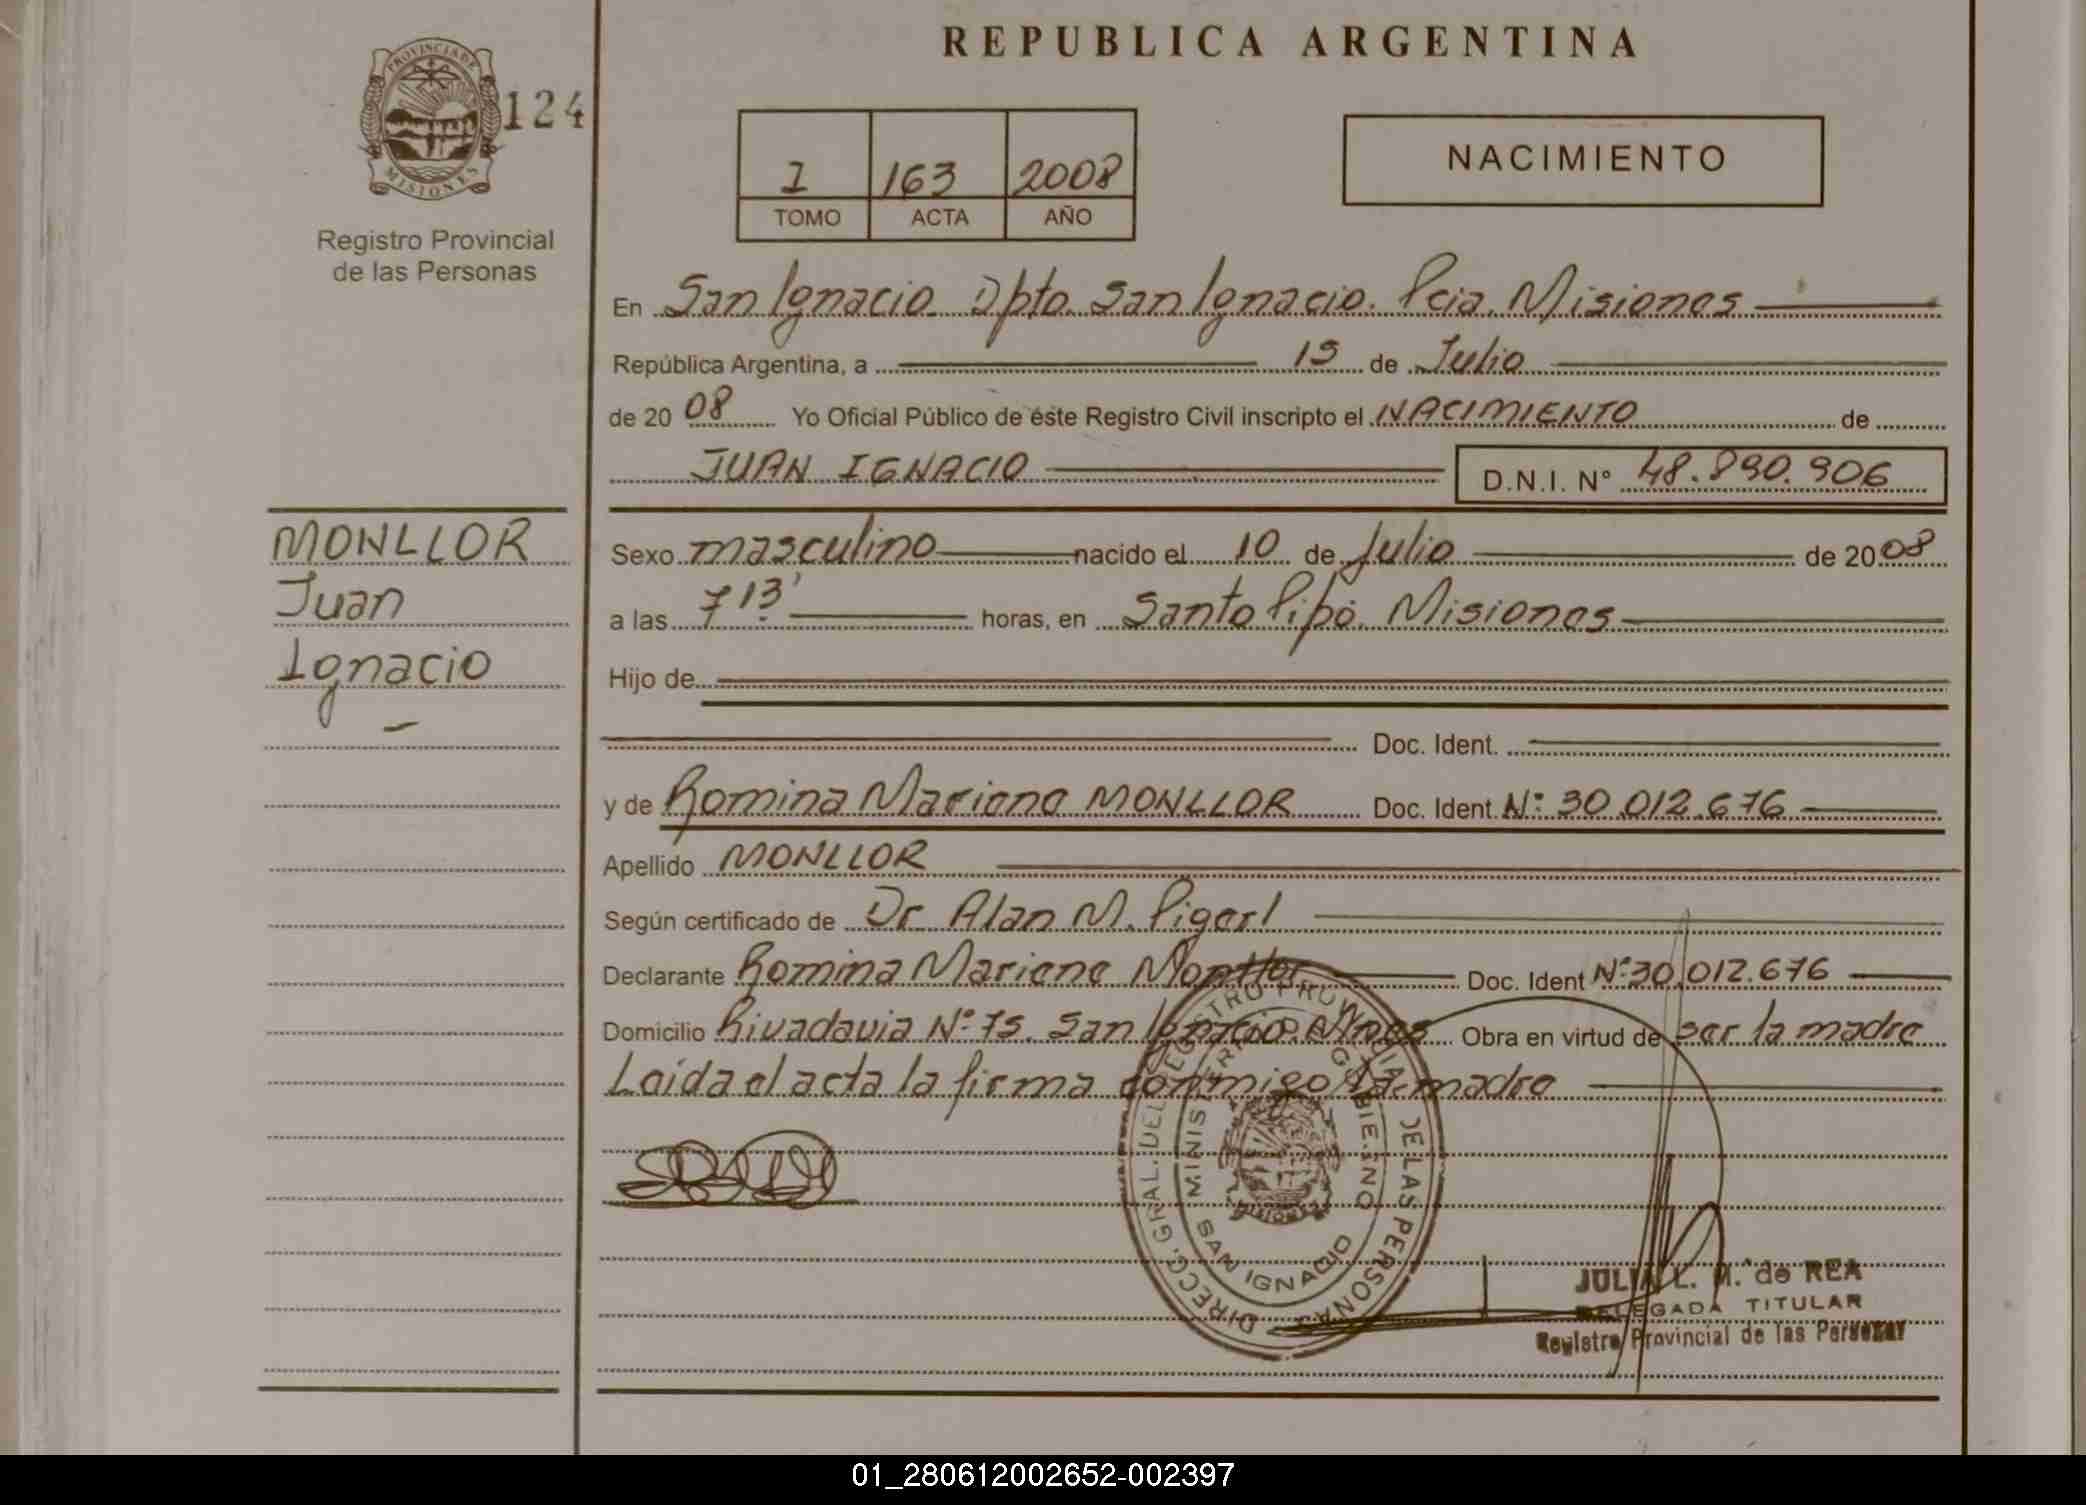 REPUBLICA ARGENTINA
PROVINCIA DE
MISIONES
124
Registro Provincial
de las Personas
I 163 2008
TOMO ACTA AÑO
NACIMIENTO
En San Ignacio Dpto. San Ignacio. Pcia. Misiones
República Argentina, a 15 de Julio
de 20 08 Yo Oficial Público de éste Registro Civil inscripto el NACIMIENTO de
JUAN IGNACIO D.N.I. N° 48.890.906
MONLLOR
Juan
Ignacio
Sexo masculino nacido el 10 de Julio de 20 08
a las 7 13' horas, en Santo Pipó. Misiones
Hijo de
Doc. Ident.
y de Romina Mariana MONLLOR Doc. Ident. N° 30.012.676
Apellido MONLLOR
Según certificado de Dr Alan M.
Declarante Romina Mariana Monllor Doc. Ident N° 30.012.676
Domicilio Rivadavia N° 75. San Ignacio. Mnes Obra en virtud de ser la madre
Leída el acta la firma conmigo la madre
DIRECC. GRAL. DEL REGISTRO PROVINCIAL DE LAS PERSONAS
MINISTERIO DE GOBIERNO
MISIONES
SAN IGNACIO
JULIA L. M. de REA
DELEGADA TITULAR
Registro Provincial de las Personas
01_280612002652-002397